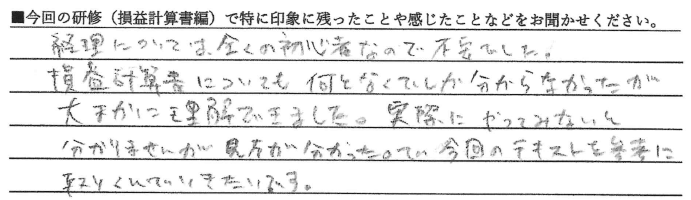 ■今回の研修（損益計算書編）で特に印象に残ったことや感じたことなどをお聞かせください。
経理については全くの初心者なので不安でした。
損益計算書についても何となくでしか分からなかったが
大まかに理解できました。実際にやってみないと
分かりませんが見方が分かったので今回のテキストを参考に
取りくんでいきたいです。